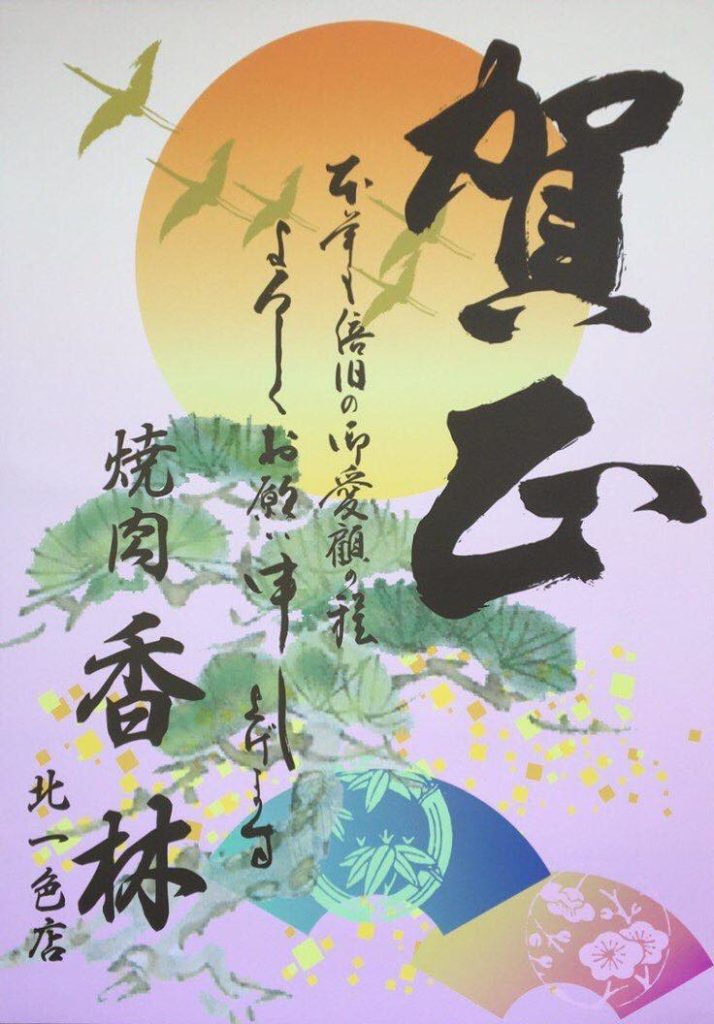 賀正
本年も倍旧の御愛顧の程
よろしくお願い申し上げます
焼肉 香林
北一色店